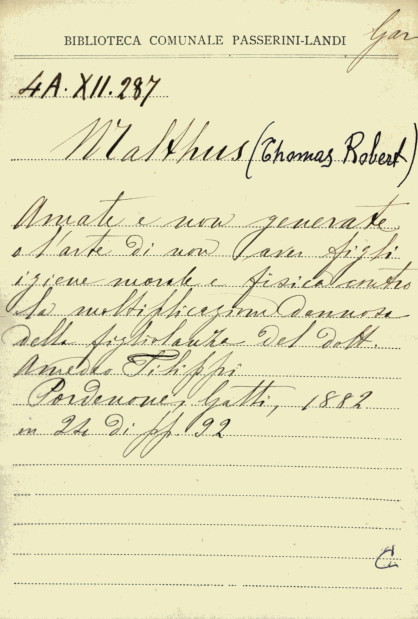 Gar
BIBLIOTECA COMUNALE PASSERINI-LANDI
4A.XII.287
Malthus (Thomas Robert)
Amate e non generate
o l'arte di non aver figli
igiene morale e fisica contro
la moltiplicazion dannosa
della figliolanza del dott.
Amedeo Filippi
Pordenone, Gatti, 1882
in 24 di pp. 92
C